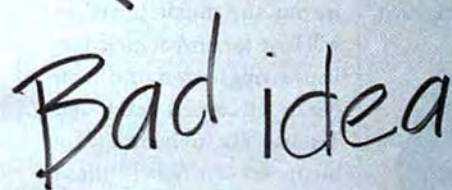 Bad idea